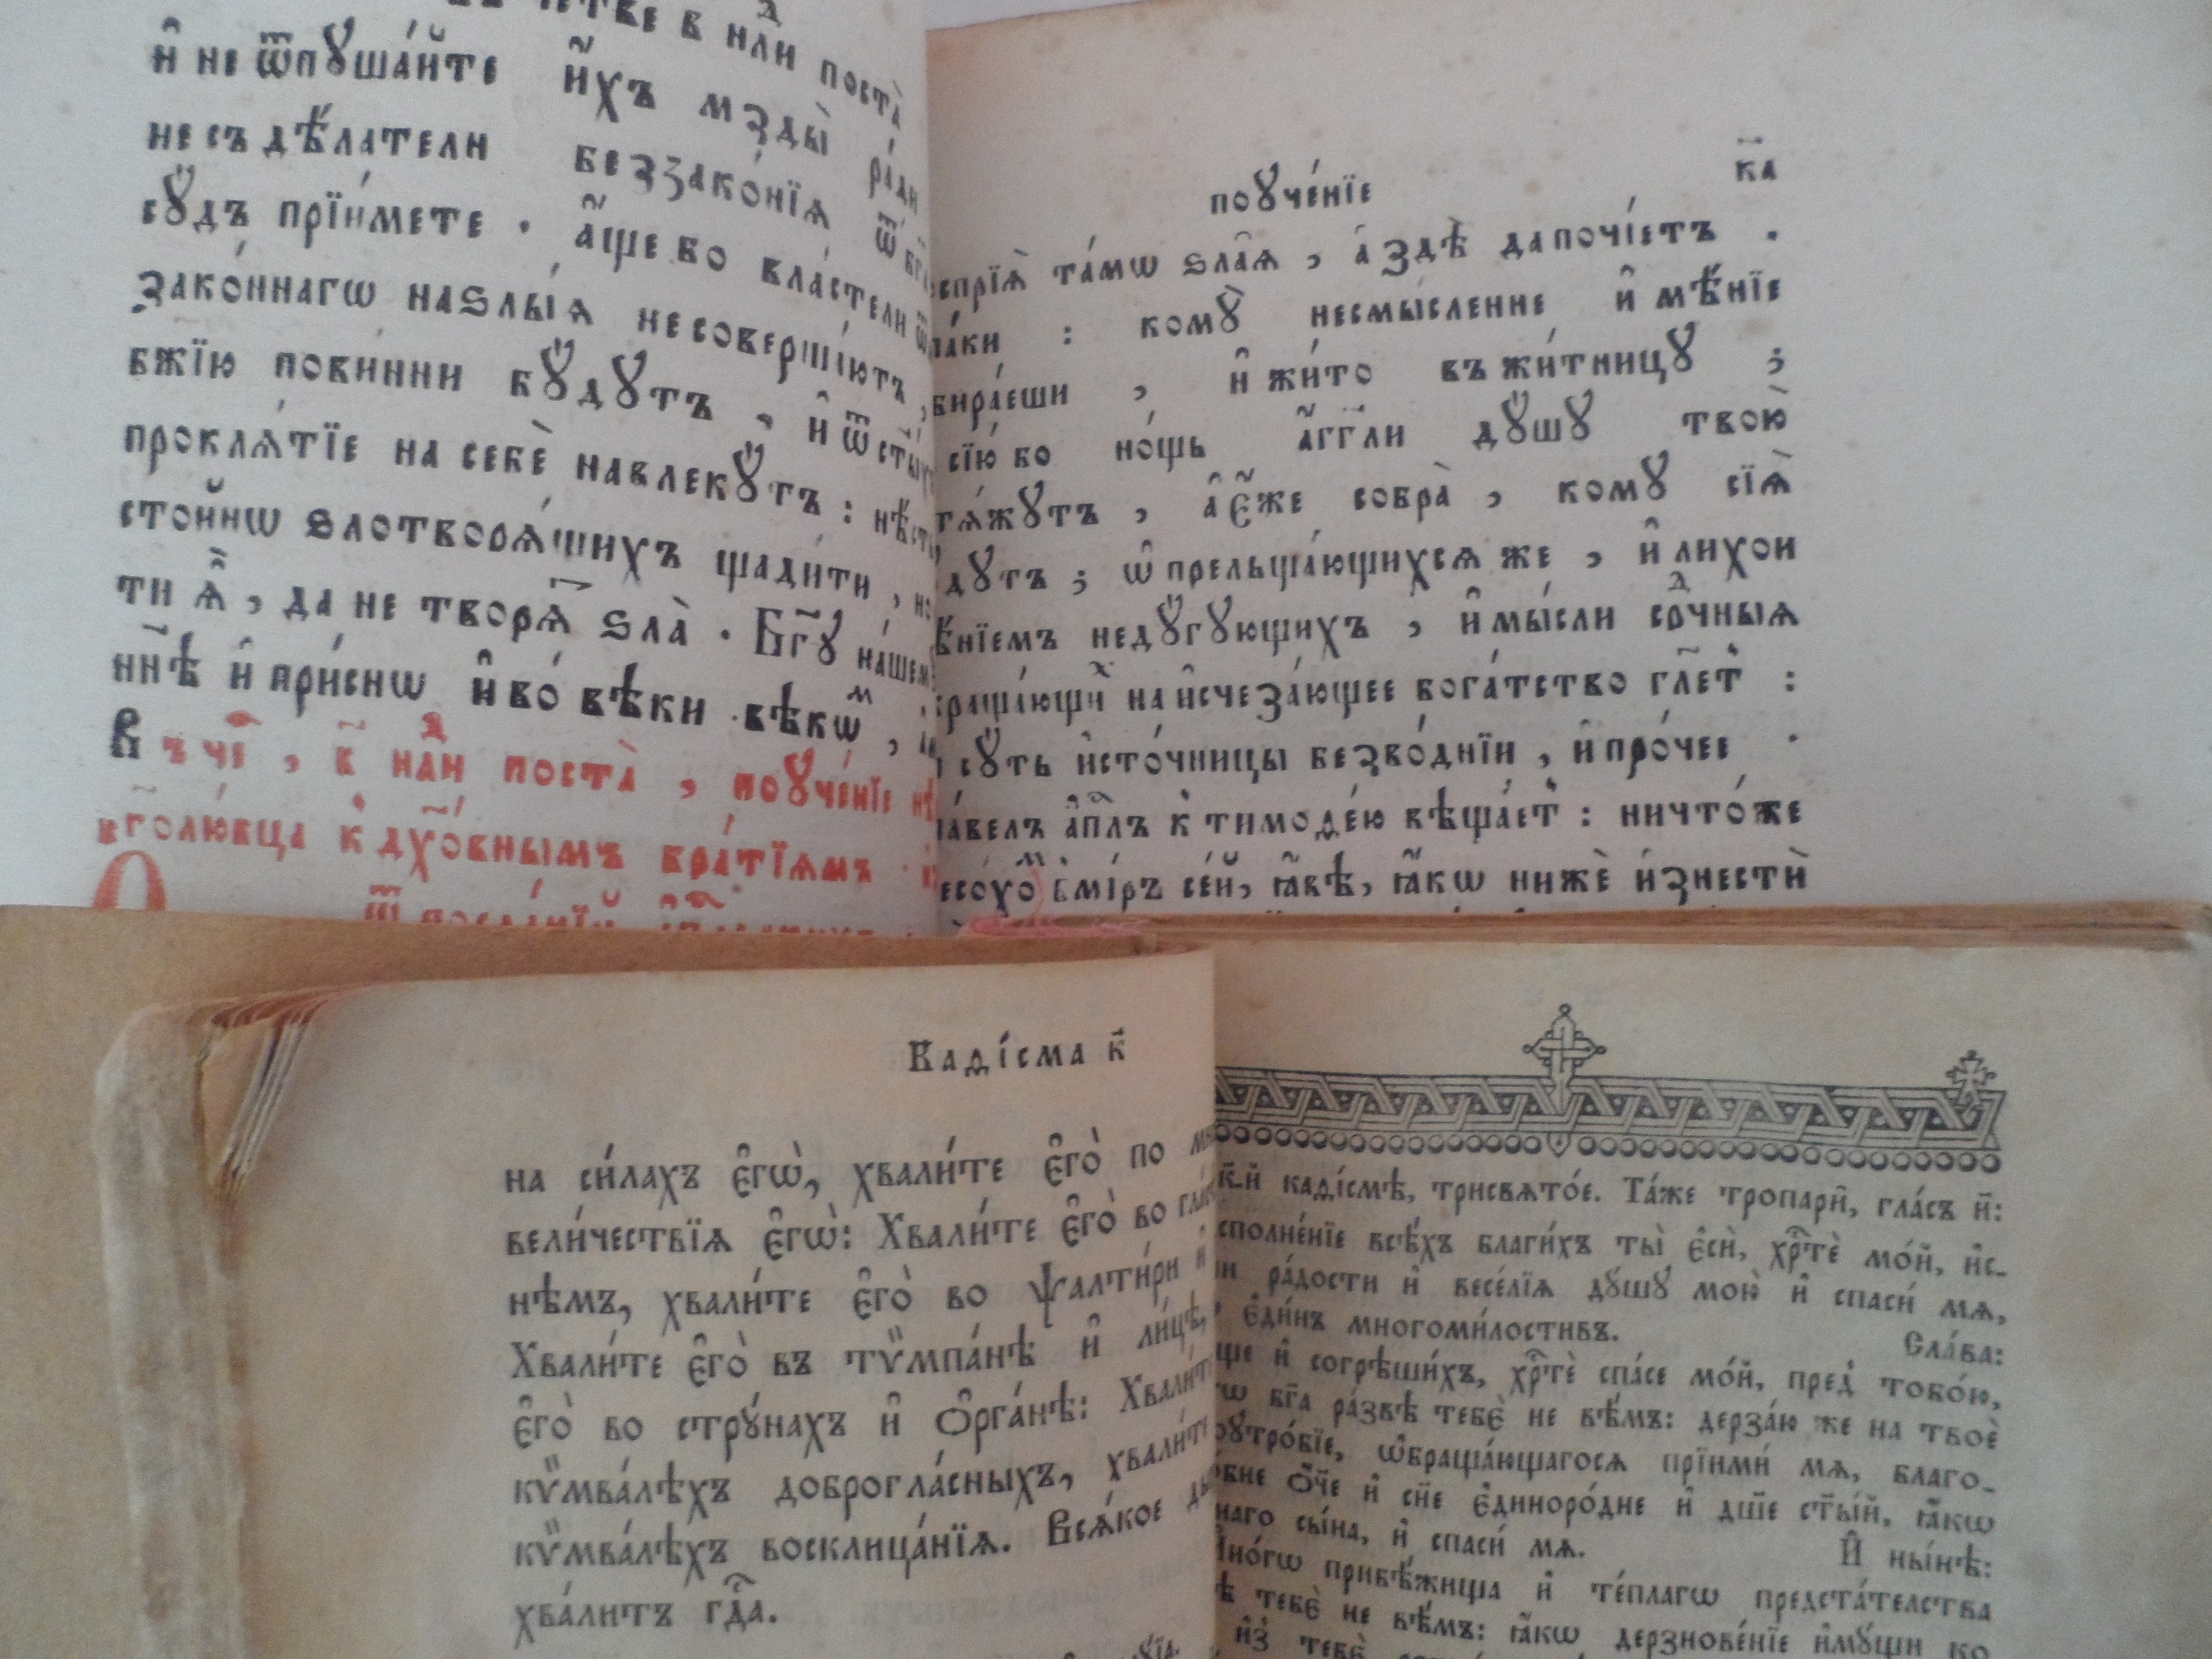 и҆ не ѿпꙋща́йте и҆́хъ мзды̀ ра́ди
не съдѣ́латели беззако́нїѧ ѿ
сꙋ́дъ прїи́мете . а҆́ще бо вла́стели
зако́ннагѡ на ѕлы́ѧ не соверша́ютъ,
бж҃їю пови́нни бꙋ́дꙋтъ , и҆ ѿ
проклѧ́тїе на себѐ навлекꙋ́тъ :
сто́йнѡ ѕлотворѧ́щихъ щади́ти ,
ти ѧ҆̀ , да не творѧ́т ѕла̀ . Бг҃ꙋ на́шем
нн҃ѣ и҆ при́снѡ и҆ во́ вѣки вѣкѡ́м ,
Въ чі҃ , в҃ нд҃ли поста̀ , поꙋче́нїе
бг҃олю́бца к̾ дх҃о́внымъ бра́тїѧмъ .
ѿ посла́нїй
поꙋче́нїе
к҃а
та́мѡ ѕла̑ѧ , а҆ здѣ̀ да почі́етъ .
па́ки : комꙋ̀ несмы́сленне и҆мѣ́нїе
бира́еши , и҆ жи́то въ жи́тницꙋ ;
сїю́ бо но́щь а҆́гг҃ли дꙋ́шꙋ твою̀
тѧ́жꙋтъ , а҆ є҆́же собра̀ , комꙋ̀ сїѧ̀
бꙋ́дꙋтъ ; ѡ҆ прельща́ющихсѧ же , и҆ лихои
мѣ́нїемъ недꙋ́гꙋющихъ , и҆ мы́сли срд҃чныѧ
на и҆счеза́ющее бога́тство гл҃етъ :
сꙋ́ть и҆сто́чницы безво́днїи , и҆ про́чее .
па́велъ а҆пⷭ҇лъ к̾ тимоѳе́ю вѣща́етъ : ничто́же
в̾ мі́ръ се́й, ꙗ҆́вѣ, ꙗ҆́кѡ нижѐ и҆знестѝ
Каѳі́сма к҃
на си́лахъ є҆гѡ̀, хвали́те є҆го̀ по
вели́чествїѧ є҆гѡ̀: Хвали́те є҆го̀ во
нѣмъ, хвали́те є҆го̀ во ѱалти́ри и҆
Хвали́те є҆го̀ въ тѷмпа́нѣ и҆ ли́цѣ,
є҆го̀ во стрꙋ́нахъ и҆ ѻ҆рга́нѣ: Хвали́те
кѷмва́лѣхъ доброгла́сныхъ, хвали́те
кѷмва́лѣхъ восклица́нїѧ. Всѧ́кое
хва́литъ гдⷭ҇а.
к҃-й каѳі́смѣ, трисвѧто́е. Та́же тропари̑, гла́съ и҃:
всѣ́хъ благи́хъ ты̀ є҆сѝ, хрⷭ҇тѐ мо́й, и҆с-
ра́дости и҆ весе́лїѧ дꙋ́шꙋ мою̀ и҆ спаси́ мѧ,
є҆ди́нъ многоми́лостивъ. Сла́ва:
и҆ согрѣши́хъ, хрⷭ҇тѐ спа́се мо́й, пред̾ тобо́ю,
бг҃а ра́звѣ тебє̀ не вѣ́мъ: дерза́ю же на твоѐ
ѡ҆браща́ющагосѧ прїими́ мѧ, благо-
ѻ҆́ч҃е и҆ сн҃е є҆диноро́дне и҆ дш҃е ст҃ы́й, ꙗ҆́кѡ
сы́на, и҆ спаси́ мѧ. И҆ ны́нѣ:
прибѣ́жища и҆ те́плагѡ предста́телства
тебє̀ не вѣ́мъ: ꙗ҆́кѡ дерзнове́нїе и҆мꙋ́щи ко
и҆з̾ тебє̀